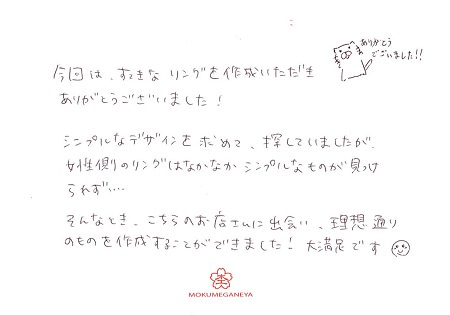 ありがとう
ございました!!
今回は、すてきなリングを作成いただき
ありがとうございました!
シンプルなデザインを求めて、探していましたが、
女性側のリングはなかなかシンプルなものが見つけ
られず…。
そんなとき、こちらのお店さんに出会い、理想通り
のものを作成することができました! 大満足です
MOKUMEGANEYA